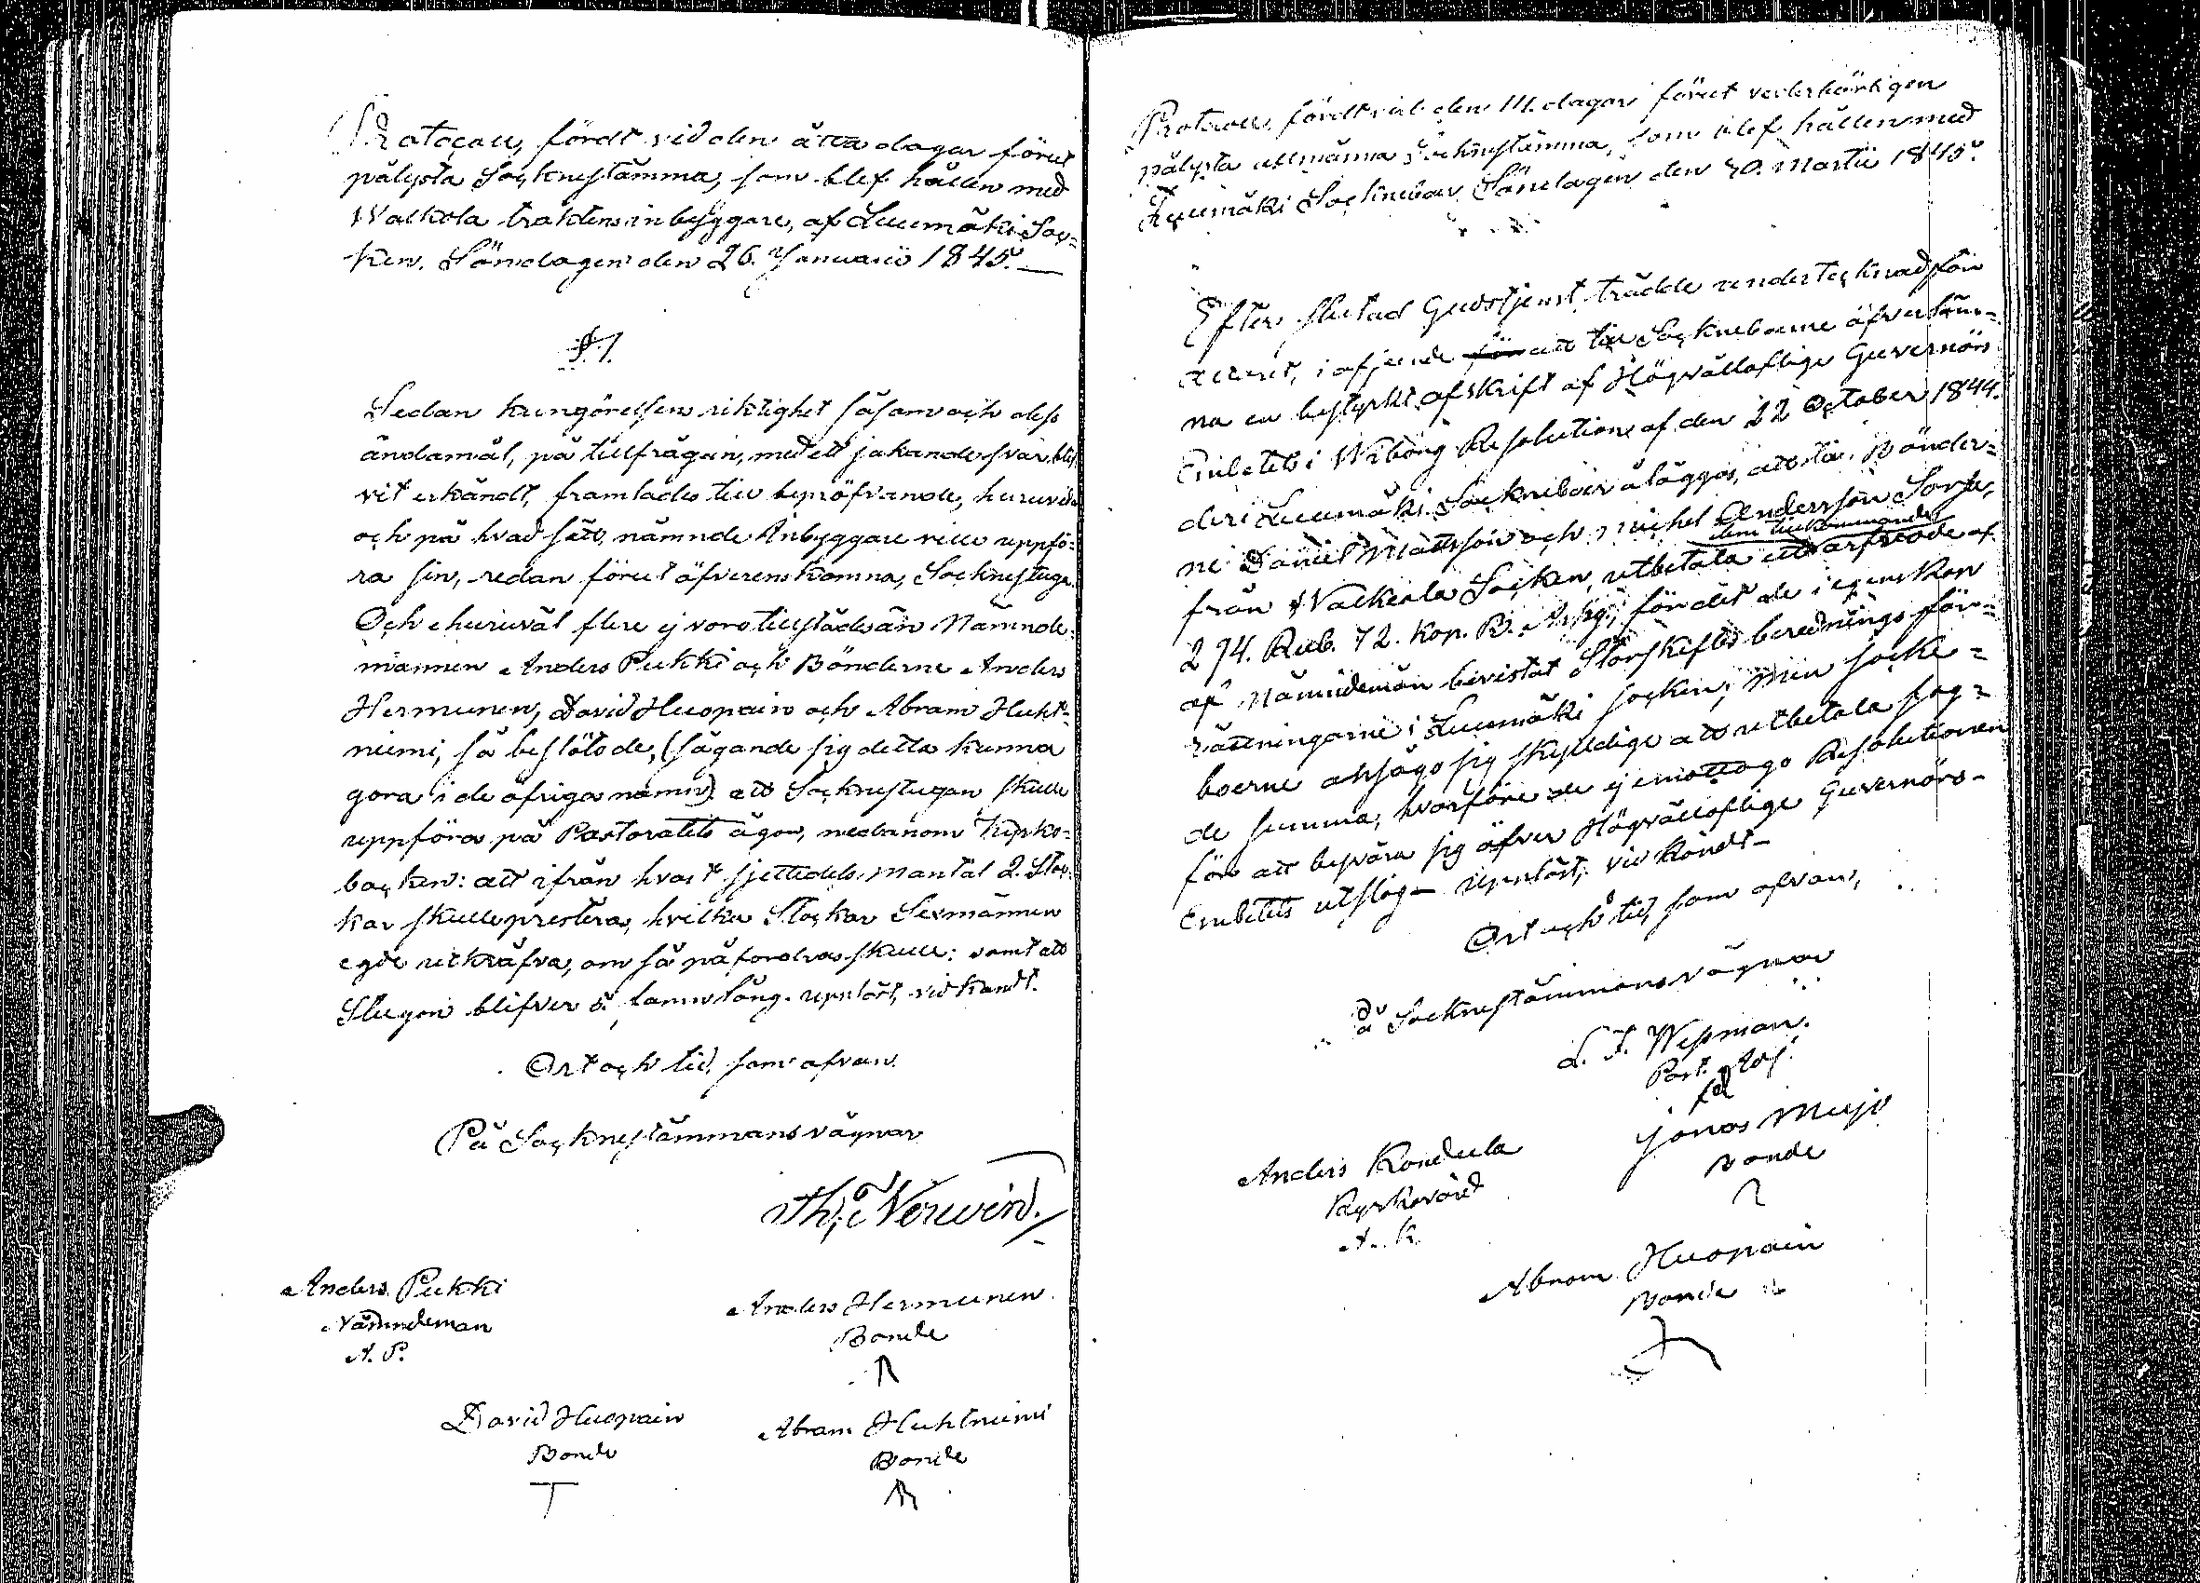 Protocoll, fördt vid den åtta dagar förut
pålysta Socknestämma, som blef hållen med
Walkola traktens inbyggare, af Luumäki Soc=
ken, Söndagen den 26. Januarii 1845. —
§ 1.
Sedan kungörelsen riktighet såsom och dess
ändamål, på tillfrågan, med ett jakande svar bli
vit erkändt, framlades till bepröfvande, huruvida
och på hvad sätt, nämnde Inbyggare ville uppfö=
ra sin, redan förut öfverenskomna, Socknestuga.
Och ehuruväl flere ej voro tillstädes än Nämnde=
mannen Anders Pukki och Bönderne Anders
Hermunen, David Huopain och Abram Huht=
niemi, så beslöto de, (sägande sig detta kunna
göra i de öfrigas namn) att Socknestugan skulle
uppföras på Pastoratets ägor, nedanom
backen: att ifrån hvart sjettedels mantal 2. Stoc=
kar skulle prestera, hvilka Stockar Sexmännen
egde utkräfva, om så påfordras skulle: samt att
Stugan blifver 5. famn lång. uppläst, vidkändt.
Ort och tid, som ofvan.
På Socknestämmans vägnar
Anders Pukki
Nämndeman
A. P.
Anders Hermunen
Bonde
David Huopain
Bonde
Abram Huhtniemi
Bonde
Protocoll, fördt vid den 14. dagar förut vederbörligen
pålysta allmänna Socknestämma, som blef hållen med
Luumäki Sockneboer Söndagen den 30. Martii 1845.
Efter slutad Gudstjenst trädde undertecknad för
altaret, i afseende för att till Sockneboerne öfverläm=
na en bestyrkt afskrift af Högvällofliga Guvernörs
Embetets i Wiborg Resolution af den 22 October 1844.
deri Luumäki Sockneboer åläggas, att till Bönder=
ne Daniel Mattsson och Michel Andersson Sorsa,
från Walkeala Socken, utbetala ett dem tillkommande arfvode af
294. Rub. 72. kop. B. Assig: för det de i egenskap
af Nämndemän bevistat Storskiftes berednings för=
rättningarne i Luumäki socken; men socke=
boerne ansågo sig skyldige att utbetala sag=
de summa, hvarföre de ej emottogo Resolutionen
för att besvära sig öfver Högvällofliga Guvernörs-
Embetets utslag – uppläst, vidkändt –
Ort och tid, som ofvan,
På Socknestämmans vägnar
L. F. Wepman.
Anders Kondula
Kyrkovärd
A. K.
Jonas Mujo
Bonde
Abram Huopain
Bonde